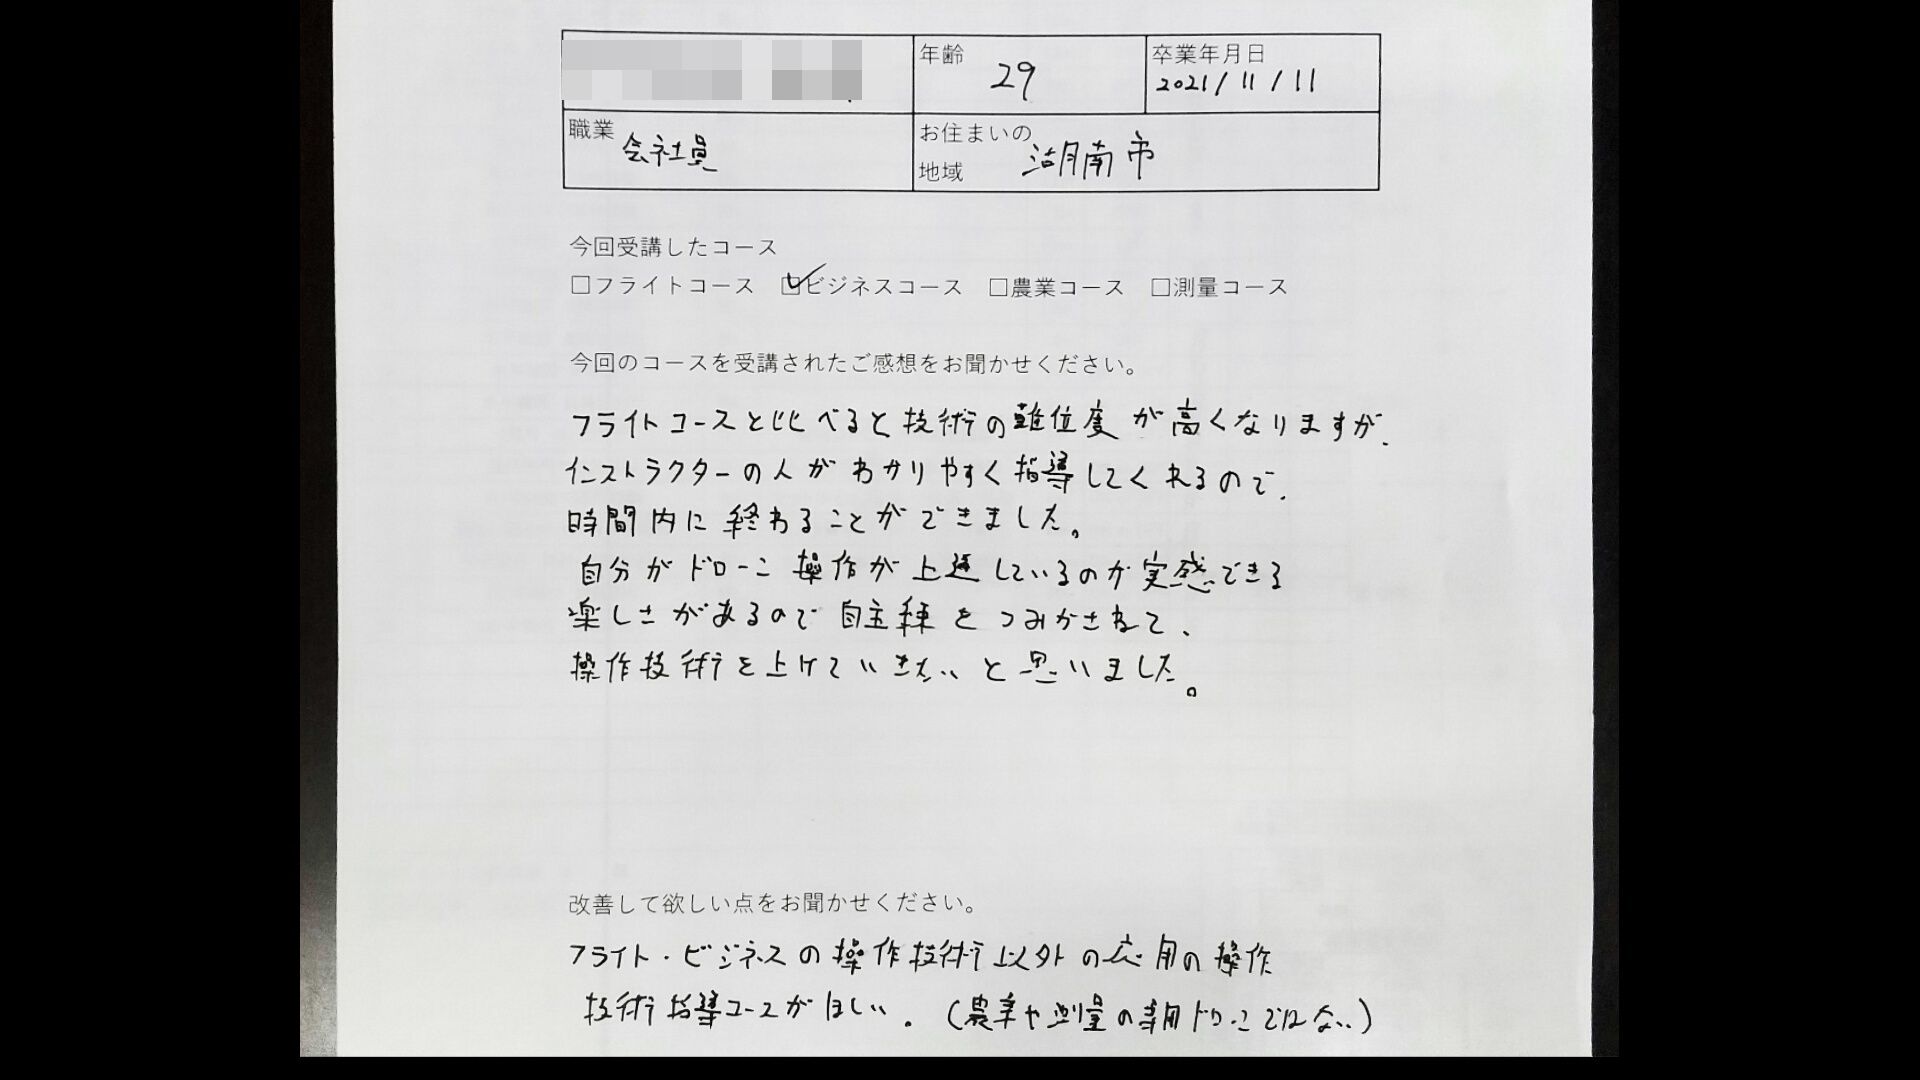 年齢 29
卒業年月日
2021/11/11
職業 会社員
お住まいの
地域 湖南市
今回受講したコース
□フライトコース ☑ビジネスコース □農業コース □測量コース
今回のコースを受講されたご感想をお聞かせください。
フライトコースと比べると技術の難位度が高くなりますが、
インストラクターの人がわかりやすく指導してくれるので、
時間内に終わることができました。
自分がドローン操作が上達しているのが実感できる
楽しさがあるので自主練をつみかさねて、
操作技術を上げていきたいと思いました。
改善して欲しい点をお聞かせください。
フライト・ビジネスの操作技術以外の応用の操作
技術指導コースがほしい。(農業や測量の専用ドローンではない)